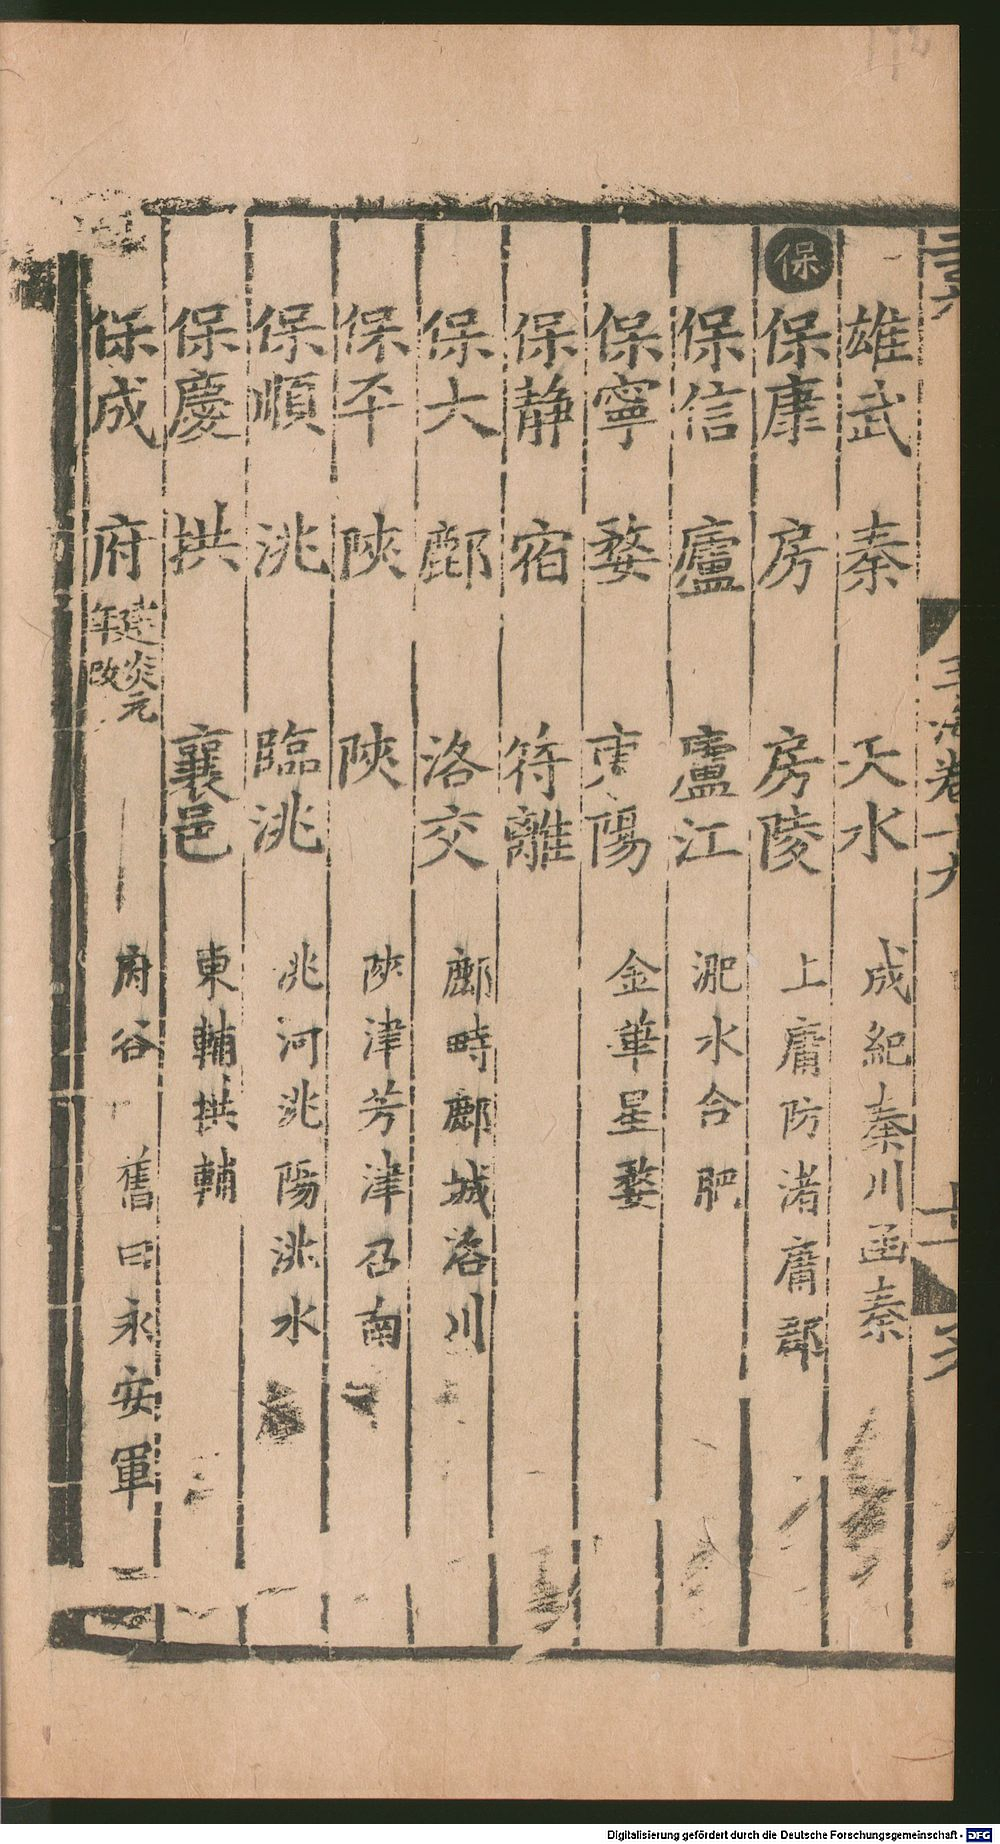 玉海卷十九
雄武 秦 天水 成紀秦川函秦
保
保康 房 房陵 上庸防渚庸郡
保信 廬 廬江 淝水合肥
保寧 婺 東陽 金華星婺
保静 宿 符離
保大 鄜 洛交 鄜畤鄜城洛川
保平 陝 陝 陝津芳津召南
保順 洮 臨洮 洮河洮陽洮水
保慶 拱 襄邑 東輔拱輔
保成 府 建炎元年改 府谷 舊曰永安軍
Digitalisierung gefördert durch die Deutsche Forschungsgemeinschaft - DFG